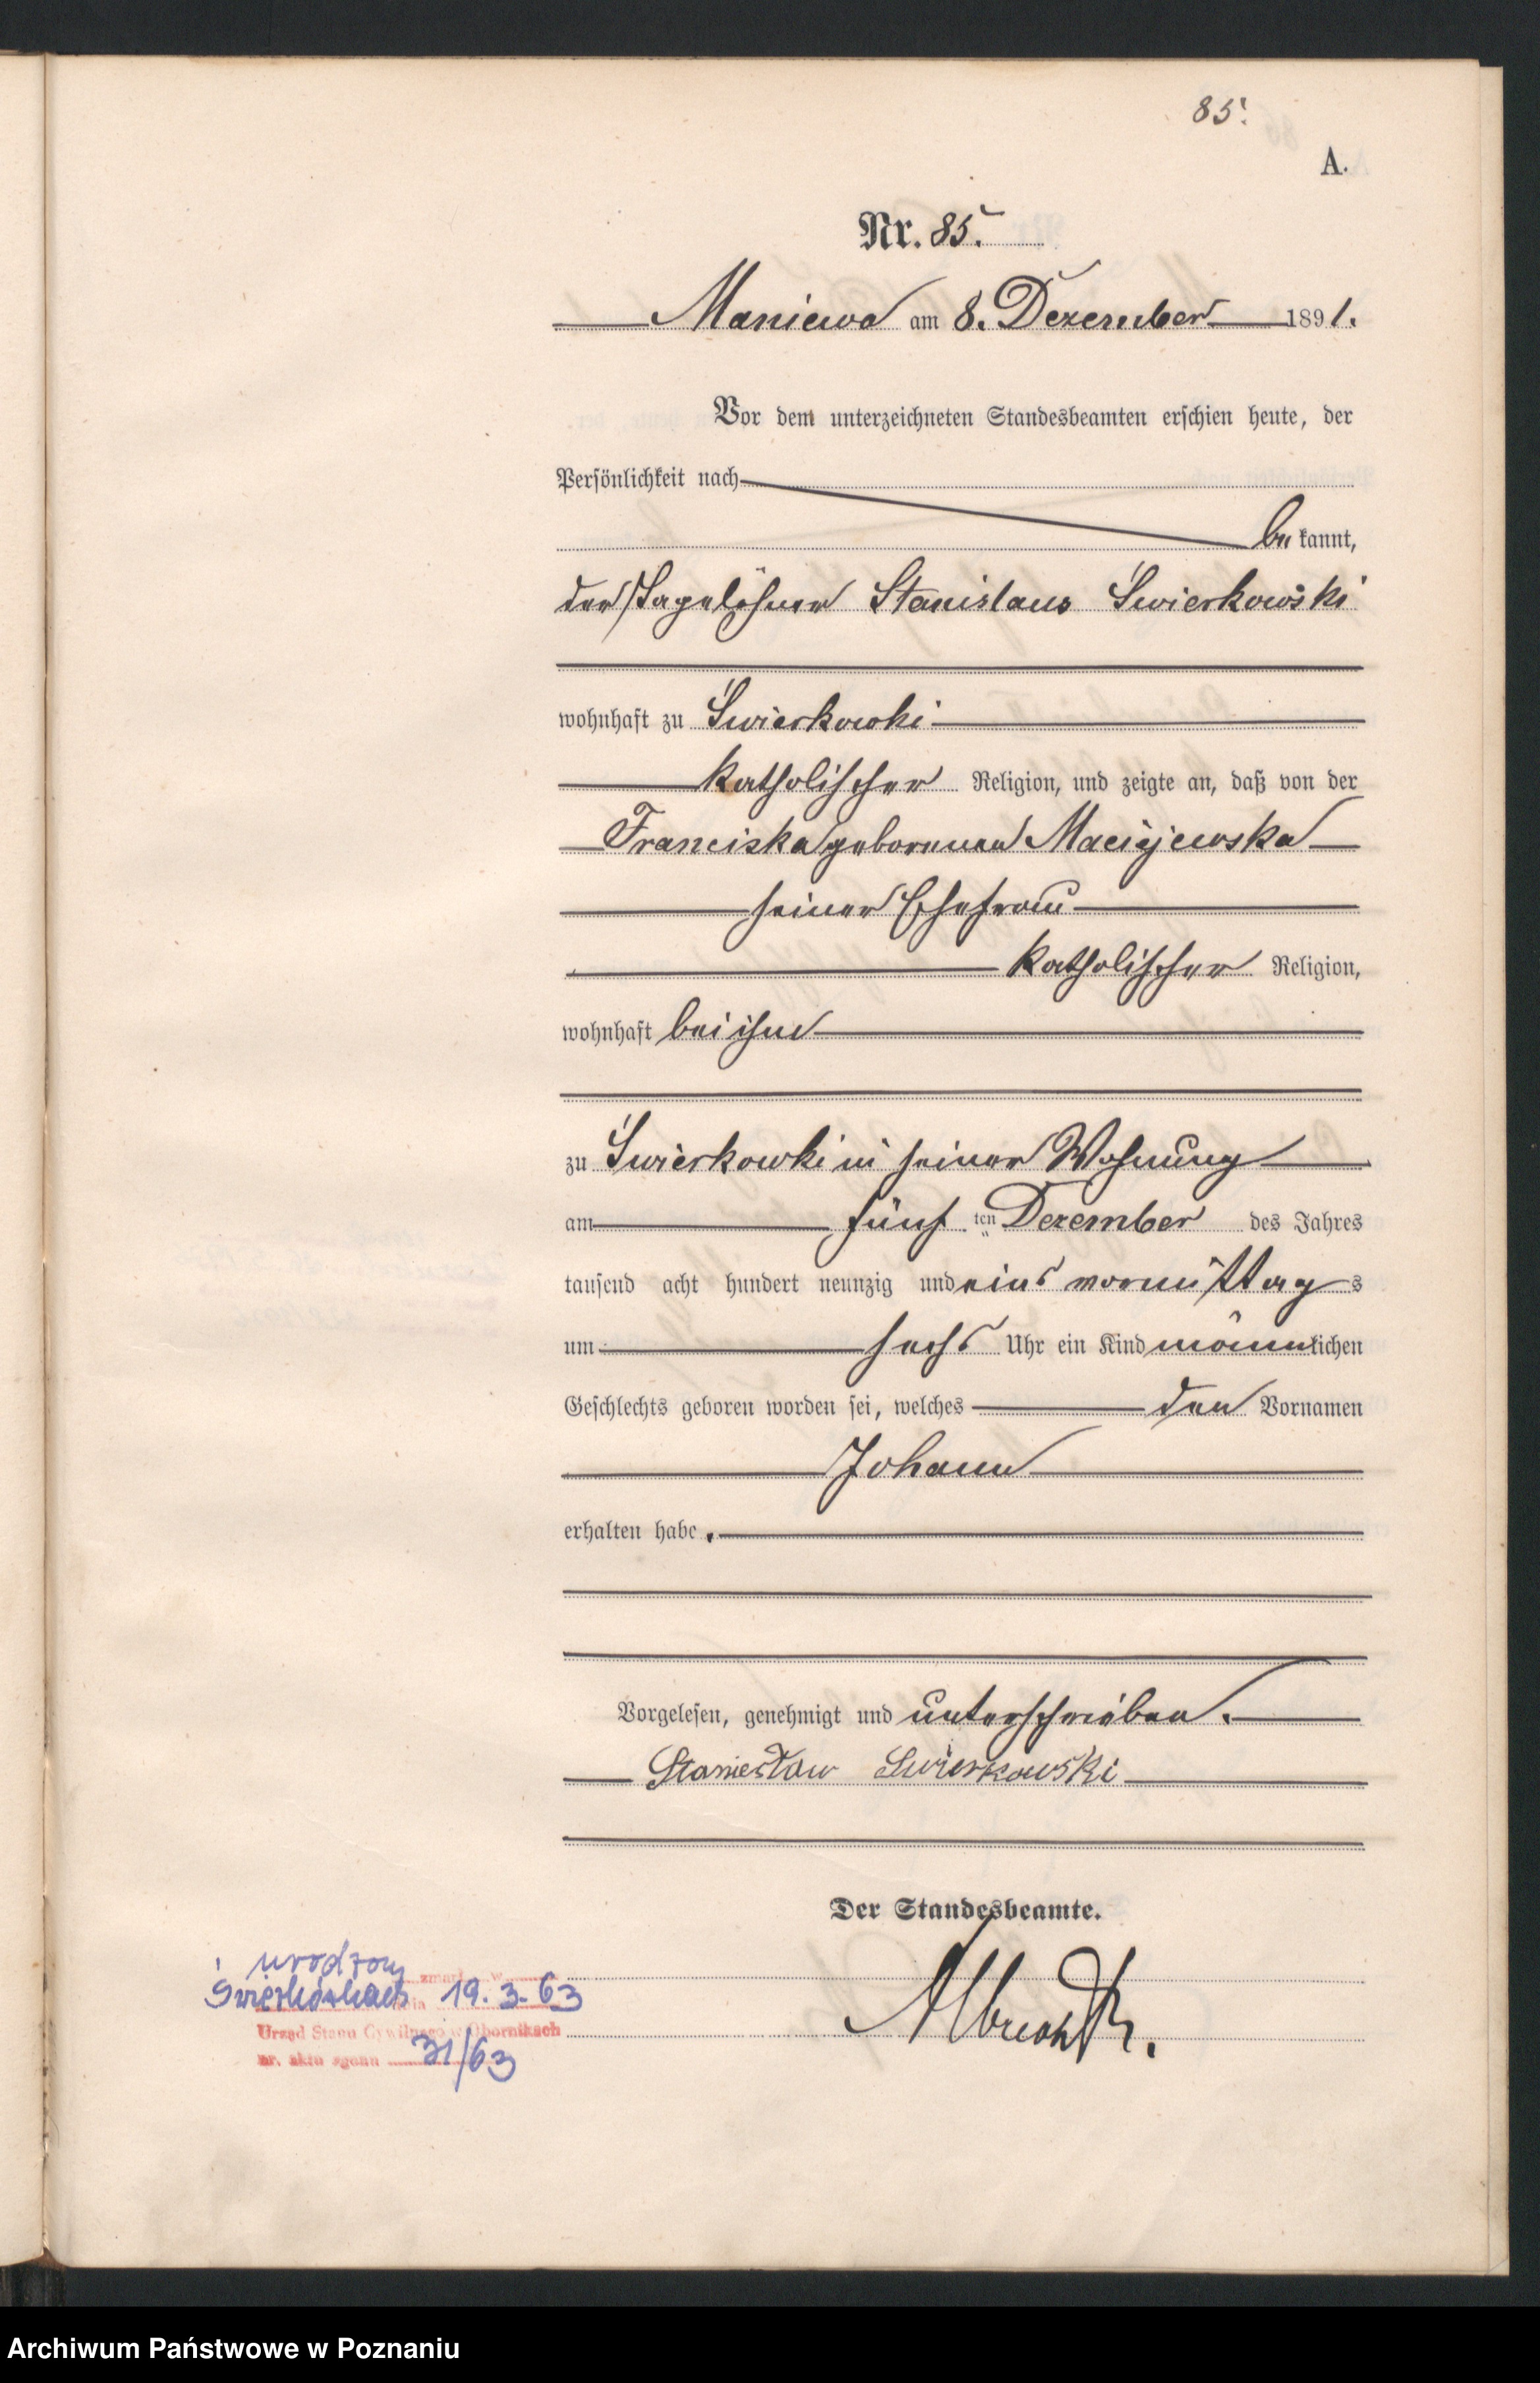 85.
A.
Nr. 85.
Maniewo am 8. Dezember 1891.
Vor dem unterzeichneten Standesbeamten erschien heute, der
Persönlichkeit nach
bekannt,
der Tagelöhner Stanislaus Świerkowski
wohnhaft zu Świerkowki
katholischer Religion, und zeigte an, daß von der
Franciska geborenen Maciejewska
seiner Ehefrau
katholischer Religion,
wohnhaft bei ihm
zu Świerkowki in seiner Wohnung
am fünften Dezember des Jahres
tausend acht hundert neunzig und eins vormittags
um sechs Uhr ein Kind männlichen
Geschlechts geboren worden sei, welches den Vornamen
Johann
erhalten habe.
Vorgelesen, genehmigt und unterschrieben.
Stanisław Swierkowski
Der Standesbeamte.
Albrecht.
urodzony
zmarł w
19.3.63
Urząd Stanu Cywilnego w Obornikach
nr. aktu zgonu 31/63
Archiwum Państwowe w Poznaniu